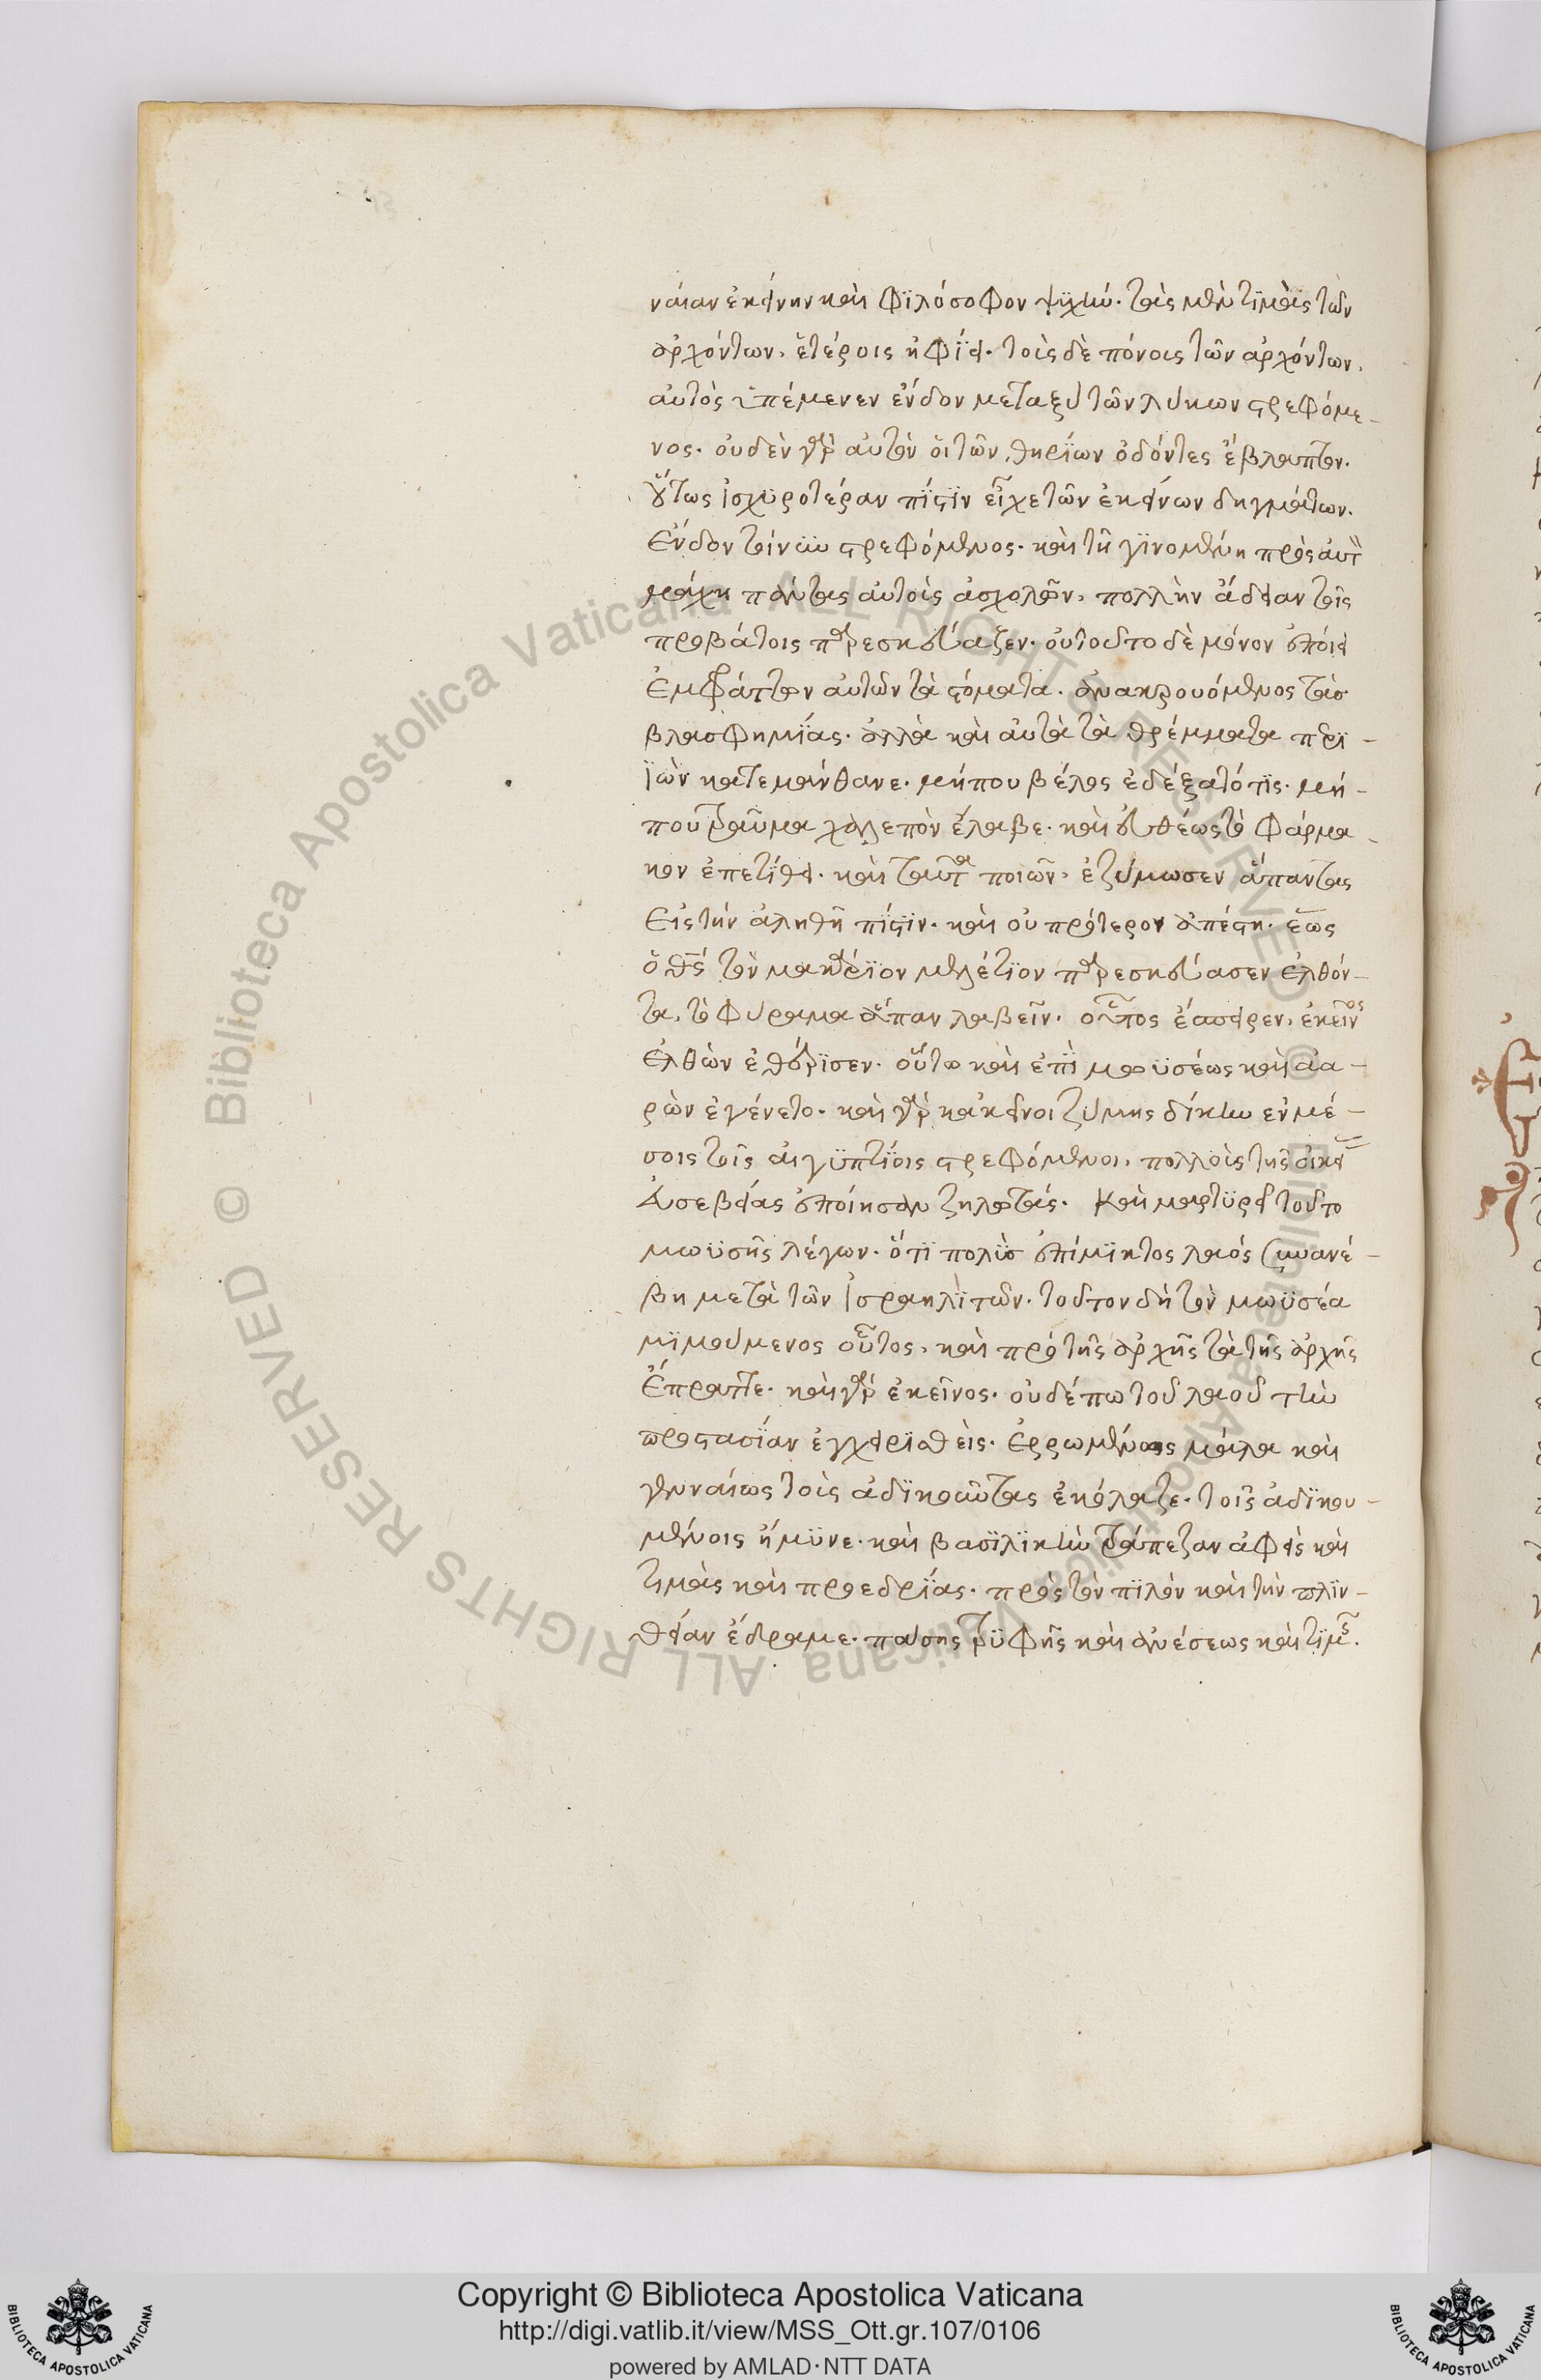 ναίαν ἐκείνην καὶ φϊλόσοφον ψϋχήν· τὰς μὲν τϊμὰς τῶν
ἀρχόντων, ἑτέροις ἠφίει· τοῖς δὲ πόνοις τῶν ἀρχόντων,
αὐτὸς ὑπέμενεν ἔνδον μεταξὺ τῶν λύκων στρεφόμε-
νος· οὐδὲν γὰρ αὐτὸν ὁι τῶν θηρίων ὀδόντες ἔβλαπτον·
οὕτως ἰσχϋροτέραν πίστϊν εἶχε τῶν ἐκείνων δηγμάτων·
Ἔνδον τοίνυν στρεφόμενος· καὶ τῆ γϊνομένη πρὸς αὐτὸν
μάχη πάντας αὐτοὺς ἀσχολῶν, πολλὴν ἄδειαν τοῖς
προβάτοις παρεσκεύαζεν· οὐ τοῦτο δὲ μόνον ἐποίει
ἐμφράττων αὐτῶν τὰ στόματα· ἀνακρουόμενος τὰσ
βλασφημίας· ἀλλὰ καὶ αὐτὰ τὰ θρέμματα περϊ-
ϊὼν κατεμάνθανε· μήπου βέλος ἐδέξατό τϊς· μή-
που τραῦμα χαλεπὸν ἔλαβε· καὶ εὐθέως τὸ φάρμα-
κον ἐπετίθει· καὶ ταῦτα ποιῶν, ἐζύμωσεν ἅπαντας
Εἰς τὴν ἀληθῆ πίστϊν· καὶ οὐ πρότερον ἀπέστη· ἕως
ὁ θς τὸν μακάρϊον μελέτϊον παρεσκεύασεν ἐλθόν-
τα, τὸ φύραμα ἅπαν λαβεῖν· οὗτος ἔασπειρεν, ἐκεῖνος
Ἐλθὼν ἐθέρϊσεν· οὕτω καὶ ἐπὶ μωϋσέως καὶ ἀα-
ρὼν ἐγένετο· καὶ γὰρ κἀκεῖνοι ζύμης δίκην ἐν μέ-
σοις τοῖς αἰγϋπτίοις στρεφόμενοι, πολλοὺς τῆς οἰκεί
Ἀσεβείας ἐποίησαν ζηλωτάς· Καὶ μαρτϋρεῖ τοῦτο
μωϋσῆς λέγων· ὅτϊ πολὺσ ἐπίμϊκτος λαός συνανέ-
βη μετὰ τῶν ἰσραηλϊτῶν· τοῦτον δὴ τὸν μωϋσέα
μϊμούμενος οὗτος, καὶ πρὸ τῆς ἀρχῆς τὰ τῆς ἀρχῆς
Ἔπραττε· καὶ γὰρ ἐκεῖνος· οὐδέπω τοῦ λαοῦ τὴν
προστασίαν ἐγχειρϊσθεὶς· Ἐρρωμένως μάλα καὶ
γενναίως τοὺς ἀδϊκοῦντας ἐκόλαζε· τοῖς ἀδϊκου-
μένοις ἤμϋνε· καὶ βασϊλϊκὴν τράπεζαν ἀφεὶς καὶ
τιμὰς καὶ προεδρίας· πρὸς τὸν πϊλὸν καὶ τὴν πλϊν-
θείαν ἔδραμε· πάσης τρϋφῆς καὶ ἀνέσεως καὶ τϊμῆς·
Copyright © Biblioteca Apostolica Vaticana
http://digi.vatlib.it/view/MSS_Ott.gr.107/0106
powered by AMLAD·NTT DATA